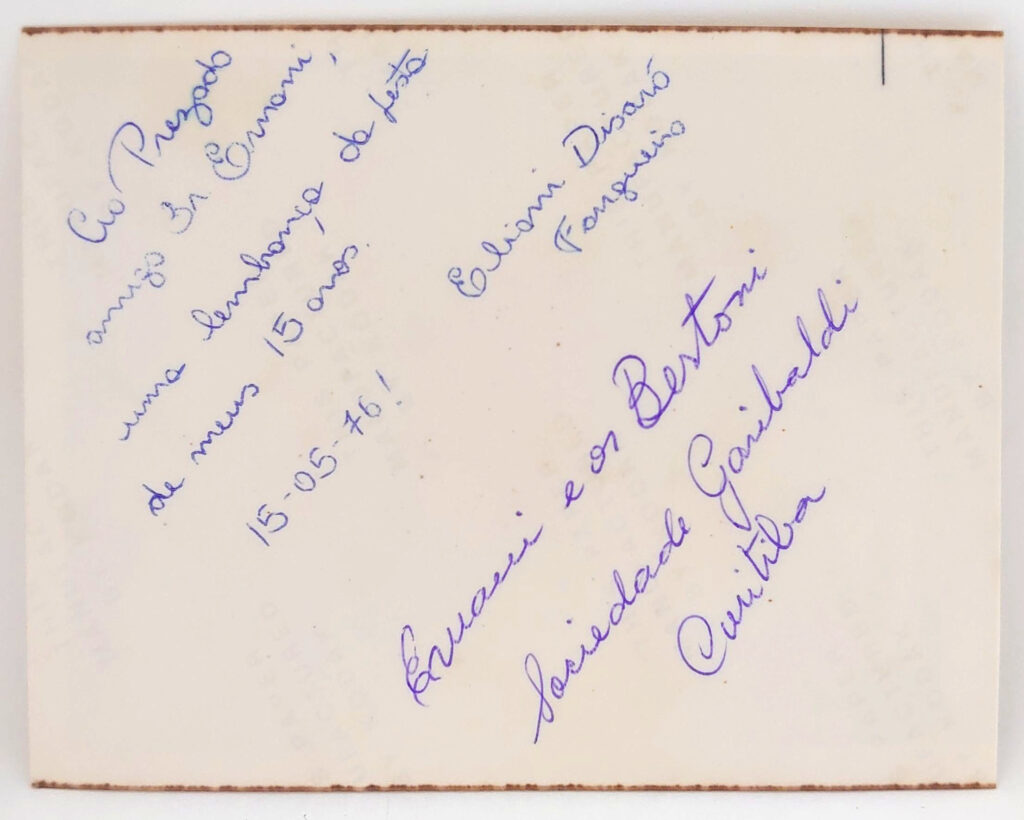 Ao Prezado
amigo Sr Ernani,
uma lembrança da festa
de meus 15 anos.
15-05-76!
Eliani Disaró
Fongueiro
Ernani e os Bertoni
Sociedade Garibaldi
Curitiba